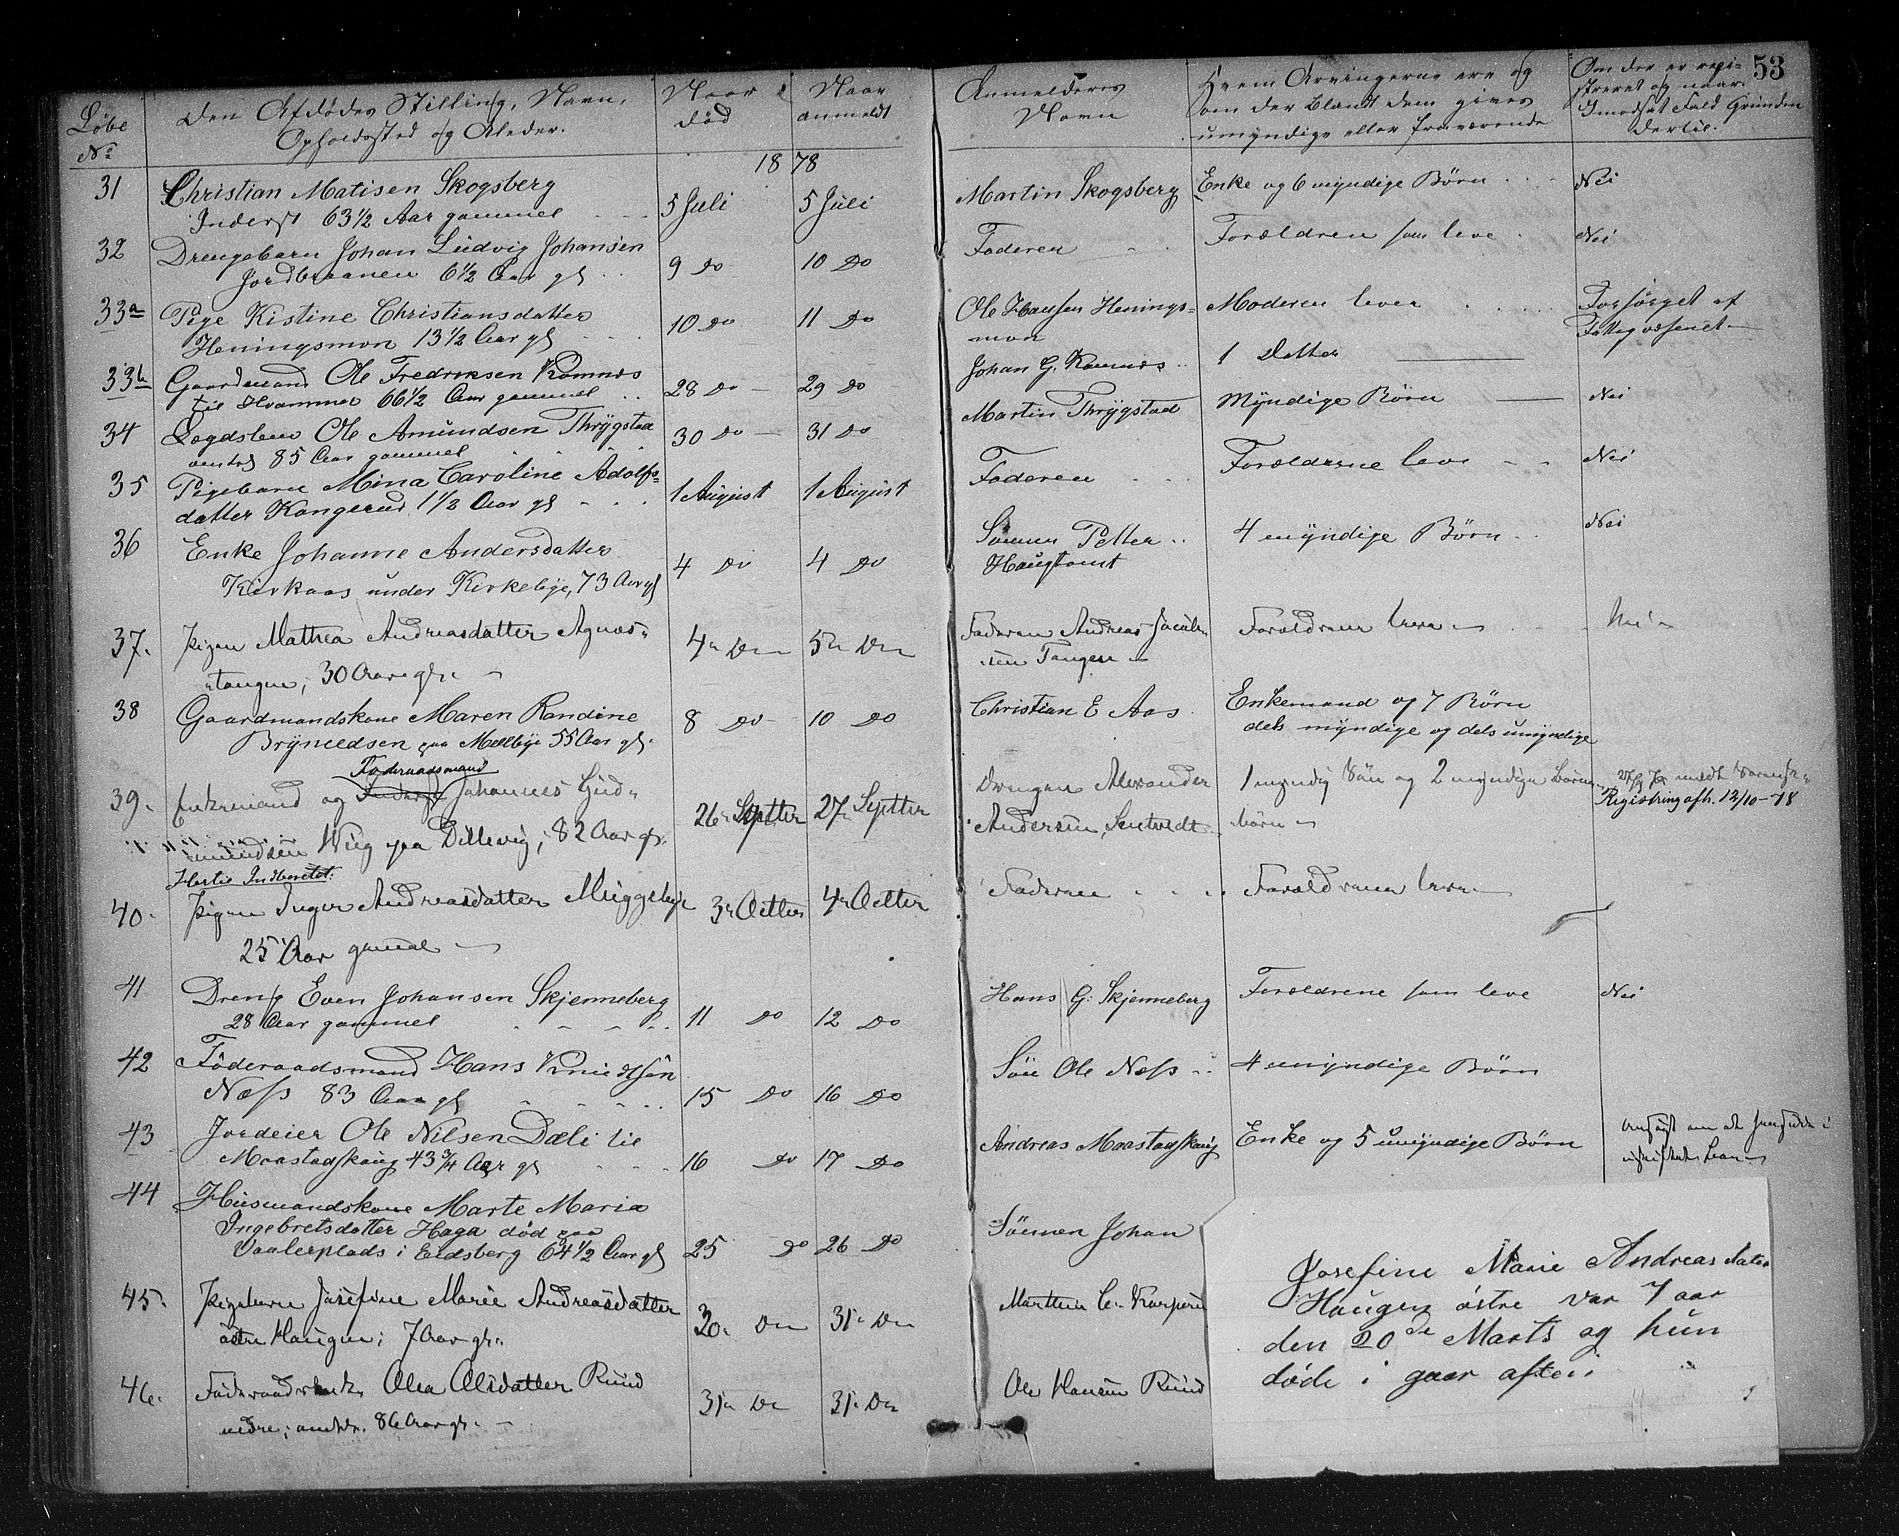 53
Løbe
No
Den Afdødes Stilling, Navn,
Opholdssted og Alder.
Naar
død
Naar
anmeldt
Anmelderes
Navn
Hvem Arvingerne ere og
om der blandt dem gives
umyndige eller fraværende
Om der er regi-
streret og naar.
I modsat Fald Grunden
dertil.
1878
31 Christian Matisen Skogsberg
Inderst 63 1/2 Aar gammel 5 Juli 5 Juli Martin Skogsberg Enke og 6 myndige Børn Nei
32 Drengebarn Johan Ludvig Johansen
Jordbraanen 6 1/2 Aar gl 9 Do 10 Do Faderen Forældren som leve Nei
33a Pige Kistine Christiansdatter
Heningsmon 13 1/2 Aar gl 10 Do 11 Do Ole Hansen Henings-
mon Moderen lever Forsørget af
Fattigvæsenet
33b Gaardmand Ole Fredriksen Romnæs
til Hvammer 66 1/2 Aar gammel 28 Do 29 Do Johan G. Romnæs 1 Datter
34 Logdslem Ole Amundsen Thrygstad
85 Aar gammel 30 Do 31 Do Martin Thrygstad Myndige Børn Nei
35 Pigebarn Mina Caroline Adolfs-
datter Kongerud 1 1/2 Aar gl 1 August 1 August Faderen Forældrene leve Nei
36 Enke Johanne Andersdatter
Kirkaas under Kirkebye, 73 Aar gl 4 Do 4 Do Sønnen Petter
Haugtomt 4 myndige Børn Nei
37. Pigen Mathea Andreasdatter Agnæs-
tangen, 30 Aar gl. 4 Do 5 Do Faderen Andreas Jacob-
sen Tangen Forældrene leve Nei
38 Gaardmandskone Maren Randine
Bryneldsen paa Mellbye 55 Aar gl. 8 Do 10 Do Christian E Aas Enkemand og 7 Børn
dels myndige og dels umyndige
Føderaadsmand
39. Enkemand og Inderst Johannes Gud-
mundsen Wiig paa Dillevig, 82 Aar gl. 26 Septter 27 Septter Drengen Alexander
Andersen 1 myndig Søn og 2 myndige Børne-
børn
Registring afh. 12/10-78
Hertil Indberetet.
40. Pigen Inger Andreasdatter Muggebye
25 Aar gammel 3 Octter 4 Octter Faderen Forældrene leve
41 Dreng Even Johansen Skjenneberg
28 Aar gammel 11 Do 12 Do Hans G. Skjenneberg Forældrene som leve Nei
42 Føderaadsmand Hans Knudtsøn
Næss 83 Aar gl 15 Do 16 Do Søn Ole Næss 4 umyndige Børn
43 Jordeier Ole Nilsen Dæli til
Maastadskaug 43 3/4 Aar gl 16 Do 17 Do Andreas Maastadskaug Enke og 5 umyndige Børn
44 Husmandskone Marte Maria
Ingebretsdatter Haga død paa
Vaalerplads i Eidsberg 64 1/2 Aar gl 25 Do 26 Do Sønnen Johan
45. Pigebarn Josefine Marie Andreasdatter
østre Haugen; 7 Aar gl. 30 Do 31 Do
46. Olea Olsdatter Ruud
nedre; 86 Aar gl. 31 Do 31 Do Ole Hansen Ruud
Josefine Marie Andreasdater
Haugen østre var 7 aar
den 20de Marts og hun
døde i gaar aften